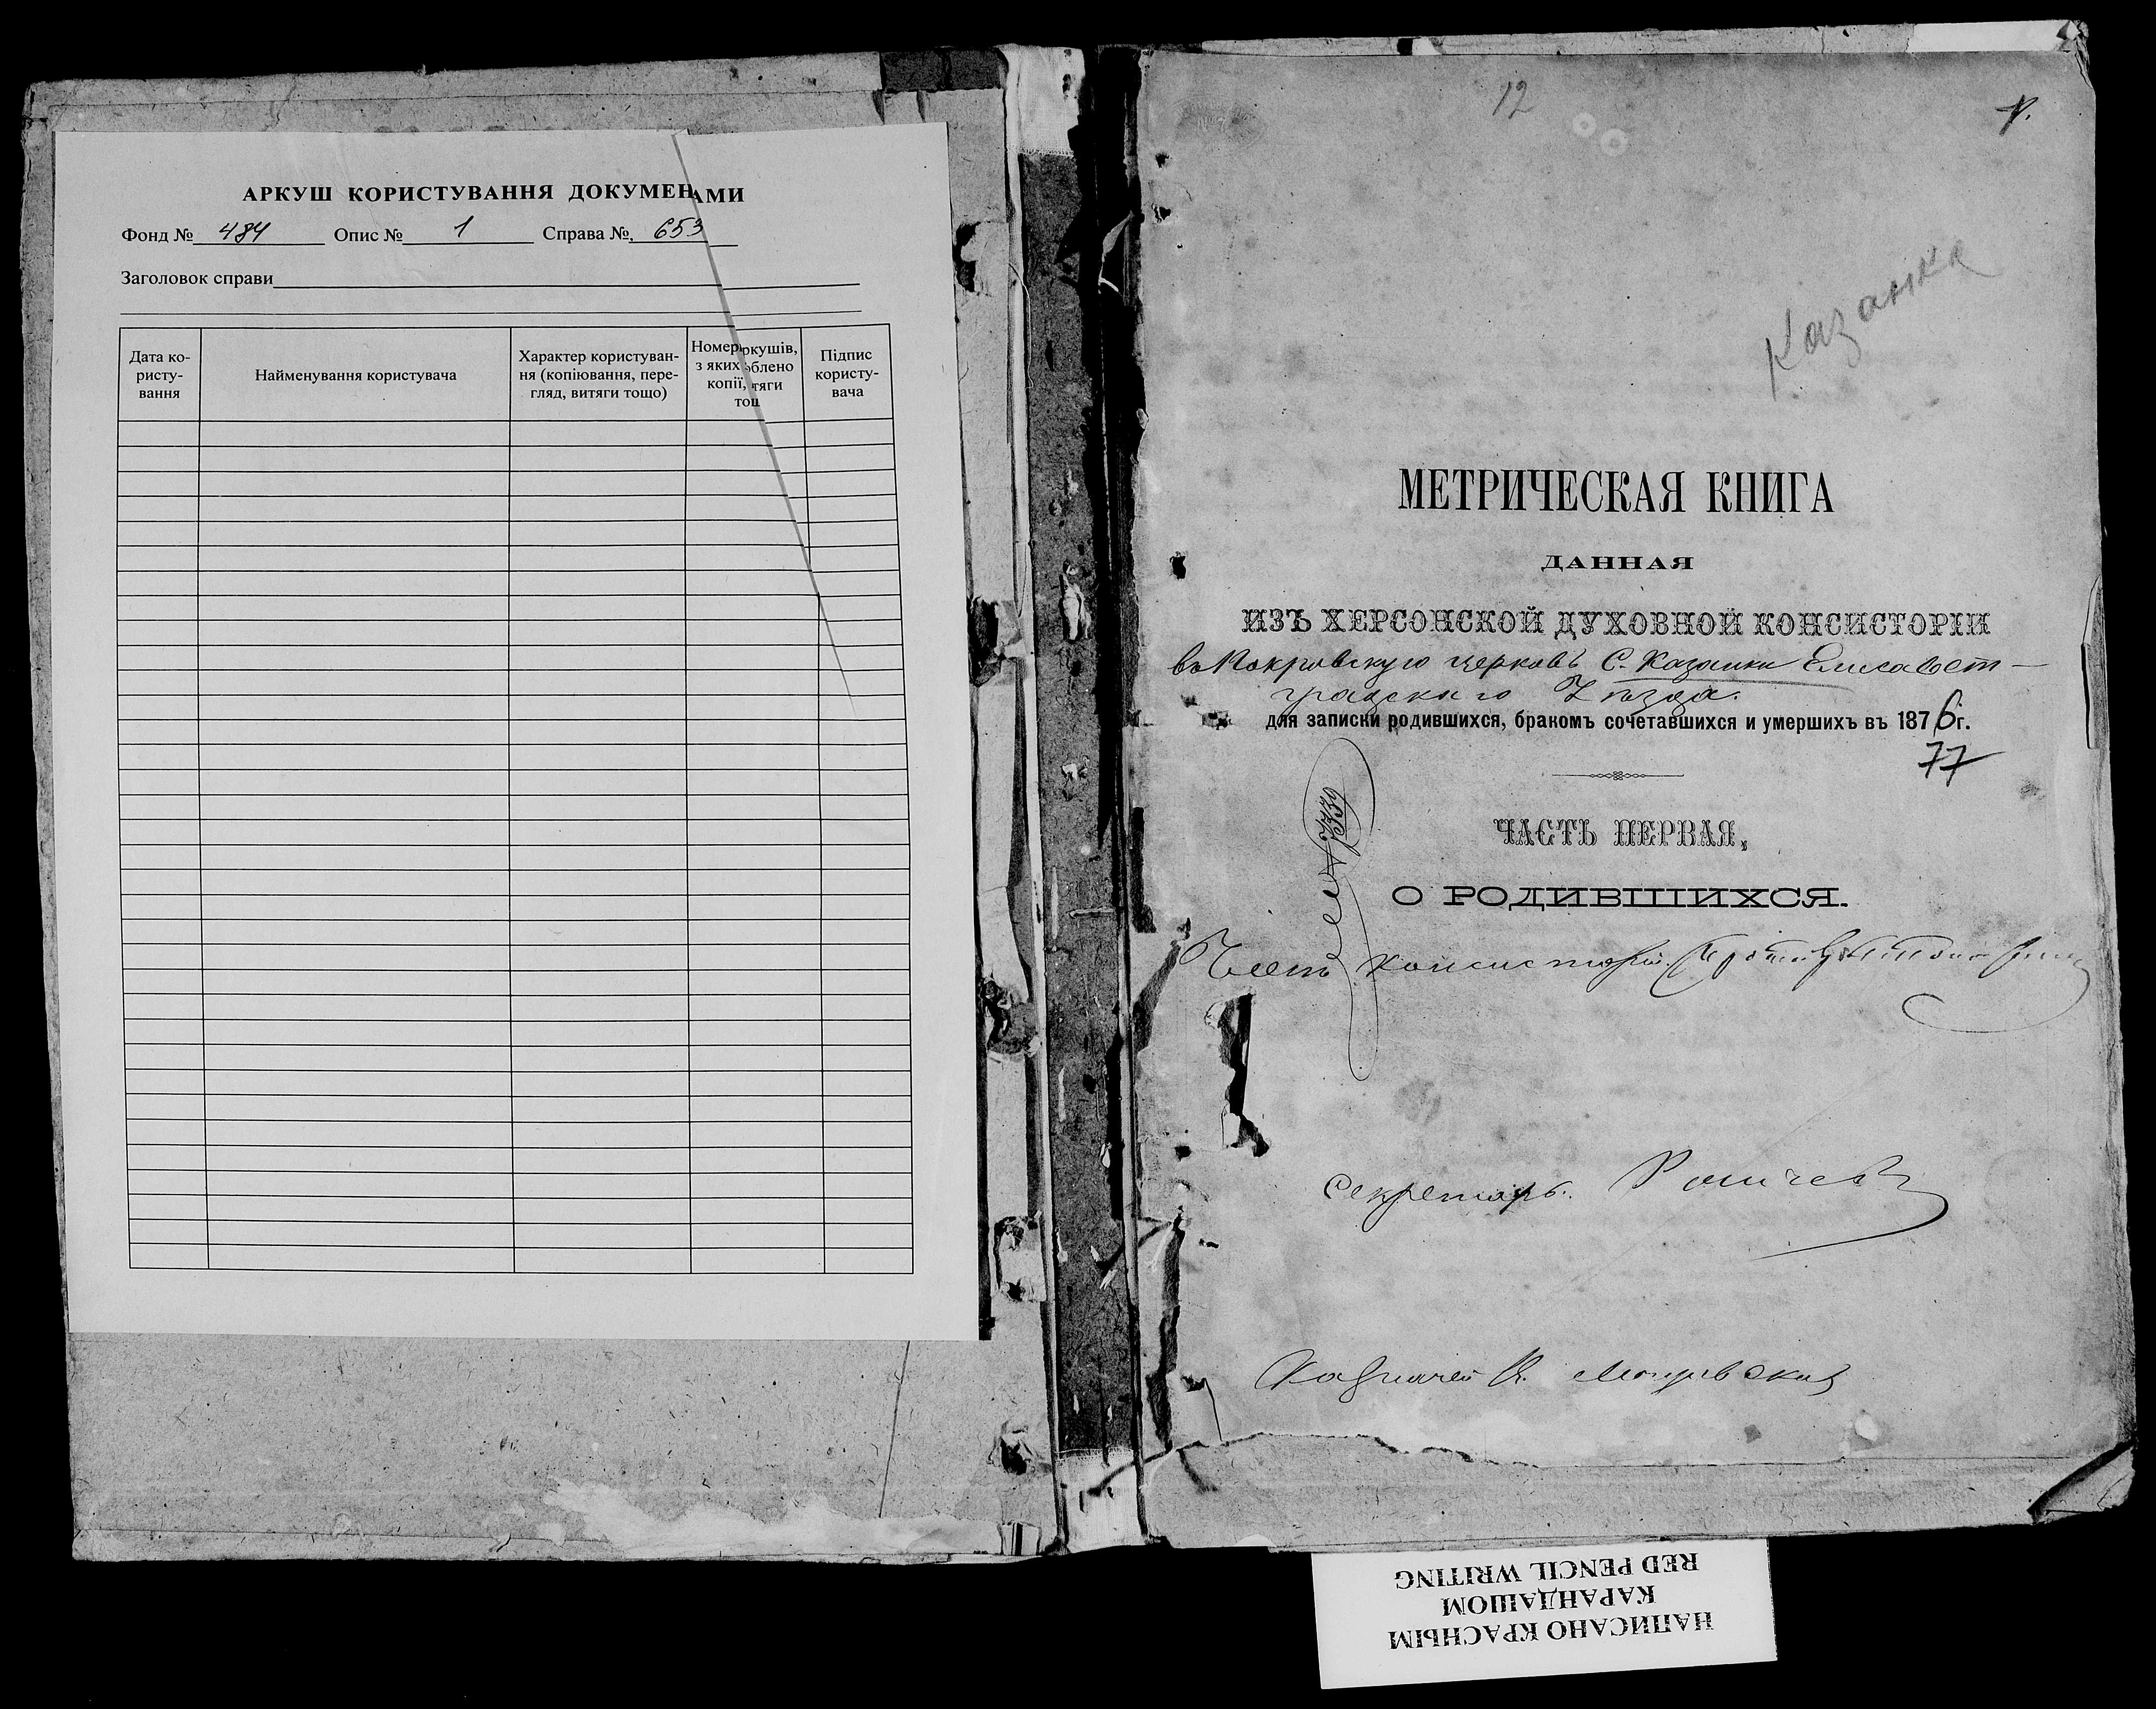 АРКУШ КОРИСТУВАННЯ ДОКУМЕН АМИ
Фонд № 484 Опис № 1 Справа №, 653
Заголовок справи
Дата ко-
ристу-
вання
Найменування користувача
Характер користуван-
ня (копіювання, пере-
гляд, витяги тощо)
Номер ркушів,
з яких облено
копії, тяги
тощ
Підпис
користу-
вача
12
1.
Казанка
МЕТРИЧЕСКАЯ КНИГА
ДАННАЯ
ИЗЪ ХЕРСОНСКОЙ ДУХОВНОЙ КОНСИСТОРІИ
въ Покровскую церковь С. Казанки Елисавет-
градскаго Уѣзда.
для записки родившихся, бракомъ сочетавшихся и умершихъ въ 1876г.
77
ЧАСТЬ ПЕРВАЯ,
О РОДИВШИХСЯ.
Членъ Консисторіи
Секретарь
Казначей
НАПИСАНО КРАСНЫМ
КАРАНДАШОМ
RED PENCIL WRITING